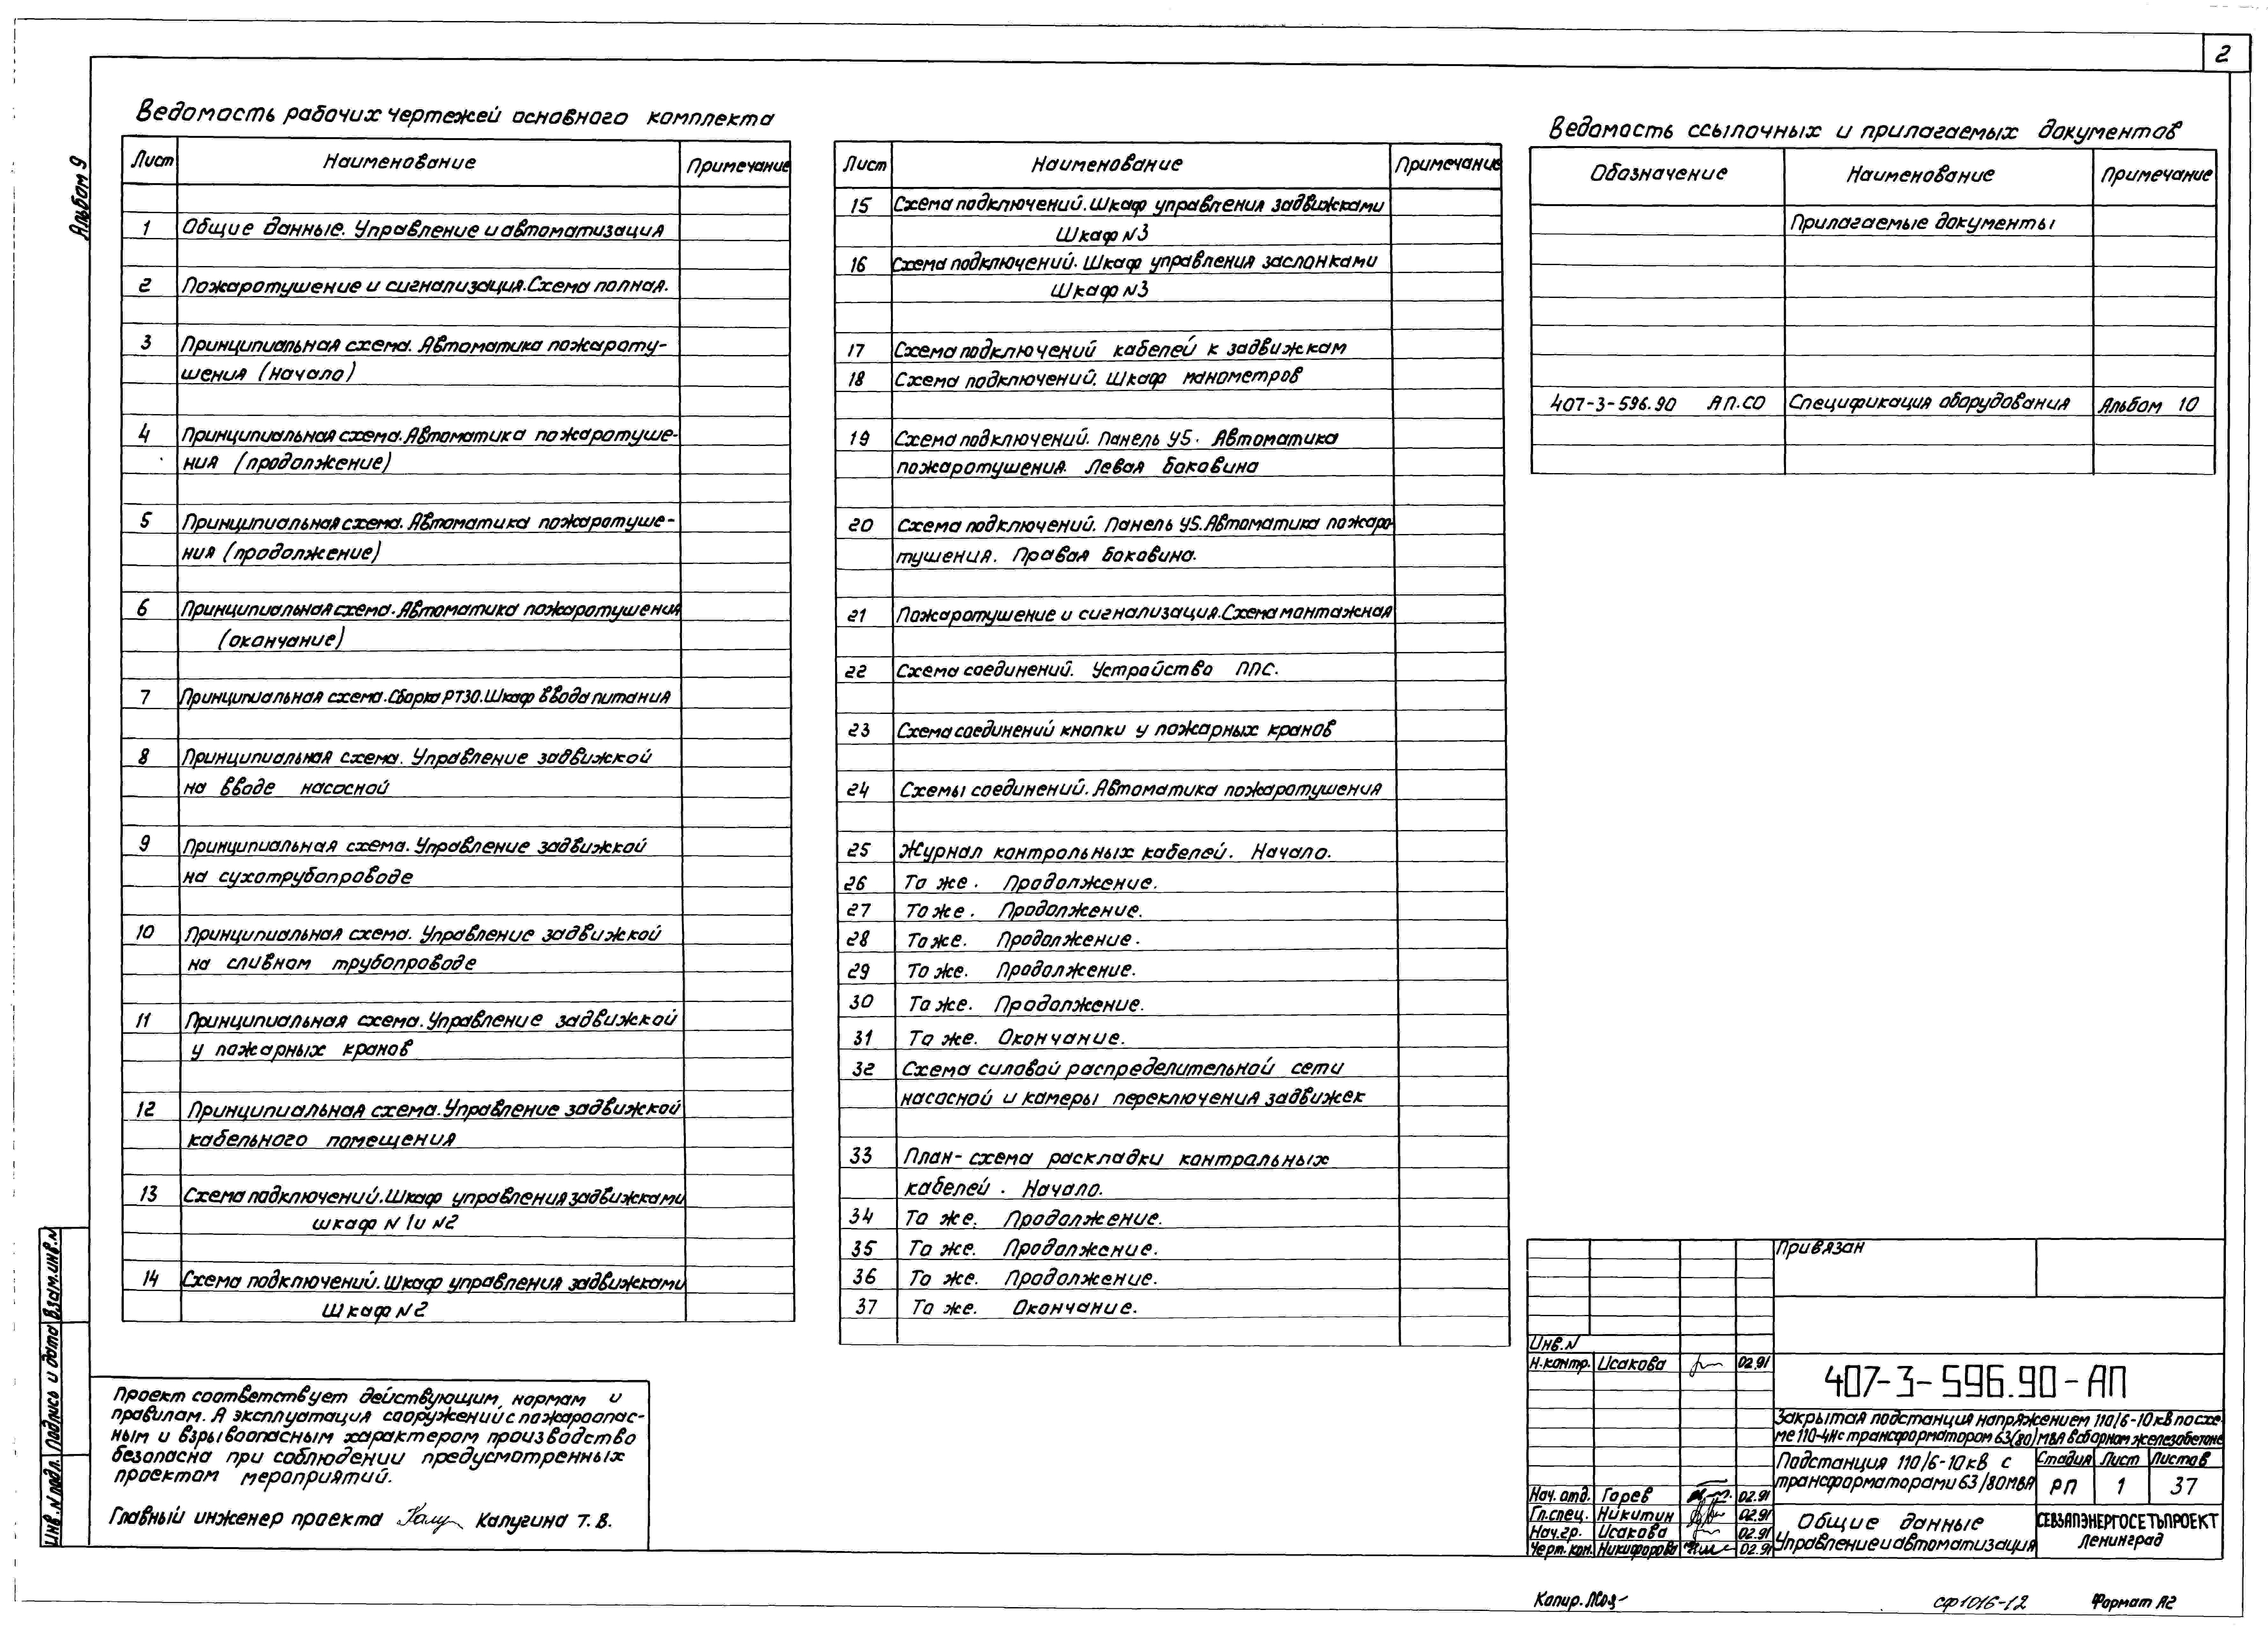 2
Альбом 9
Ведомость рабочих чертежей основного комплекта
Лист Наименование Примечание
1 Общие данные. Управление и автоматизация
2 Пожаротушение и сигнализация. Схема полная.
3 Принципиальная схема. Автоматика пожароту-
шения (начало)
4 Принципиальная схема. Автоматика пожаротуше-
ния (продолжение)
5 Принципиальная схема. Автоматика пожаротуше-
ния (продолжение)
6 Принципиальная схема. Автоматика пожаротушения
(окончание)
7 Принципиальная схема. Сборка РТ30. Шкаф ввода питания
8 Принципиальная схема. Управление задвижкой
на вводе насосной
9 Принципиальная схема. Управление задвижкой
на сухотрубопроводе
10 Принципиальная схема. Управление задвижкой
на сливном трубопроводе
11 Принципиальная схема. Управление задвижкой
у пожарных кранов
12 Принципиальная схема. Управление задвижкой
кабельного помещения
13 Схема подключений. Шкаф управления задвижками
шкаф N 1 и N2
14 Схема подключений. Шкаф управления задвижками
Шкаф N2
Лист Наименование Примечание
15 Схема подключений. Шкаф управления задвижками
Шкаф N3
16 Схема подключений. Шкаф управления заслонками
Шкаф N3
17 Схема подключений кабелей к задвижкам
18 Схема подключений. Шкаф манометров
19 Схема подключений. Панель У5. Автоматика
пожаротушения. Левая боковина
20 Схема подключений. Панель У5. Автоматика пожаро-
тушения. Правая боковина.
21 Пожаротушение и сигнализация. Схема монтажная
22 Схема соединений. Устройство ППС.
23 Схема соединений кнопки у пожарных кранов
24 Схемы соединений. Автоматика пожаротушения
25 Журнал контрольных кабелей. Начало.
26 То же. Продолжение.
27 То же. Продолжение.
28 То же. Продолжение.
29 То же. Продолжение.
30 То же. Продолжение.
31 То же. Окончание.
32 Схема силовой распределительной сети
насосной и камеры переключения задвижек
33 План-схема раскладки контрольных
кабелей. Начало.
34 То же. Продолжение.
35 То же. Продолжение.
36 То же. Продолжение.
37 То же. Окончание.
Ведомость ссылочных и прилагаемых документов
Обозначение Наименование Примечание
Прилагаемые документы
407-3-596.90 АП.СО Спецификация оборудования Альбом 10
Проект соответствует действующим нормам и
правилам. А эксплуатация сооружений с пожароопас-
ным и взрывоопасным характером производство
безопасна при соблюдении предусмотренных
проектом мероприятий.
Главный инженер проекта Калугина Т. В.
Инв. N подл. Подпись и дата Взам. инв. N
Привязан
Инв. N
Н. контр. Исакова 02.91
407-3-596.90-АП
Закрытая подстанция напряжением 110/6-10 кВ по схе-
ме 110-4Н с трансформатором 63(80) МВА в сборном железобетоне
Подстанция 110/6-10 кВ с
трансформаторами 63/80МВА
Стадия Лист Листов
РП 1 37
Нач. отд. Горев 02.91
Гл. спец. Никитин 02.91
Нач. гр. Исакова 02.91
Черт. кон. Никифорова 02.91
Общие данные
Управление и автоматизация
СЕВЗАПЭНЕРГОСЕТЬПРОЕКТ
Ленинград
Копир.
сф1016-12
Формат А2